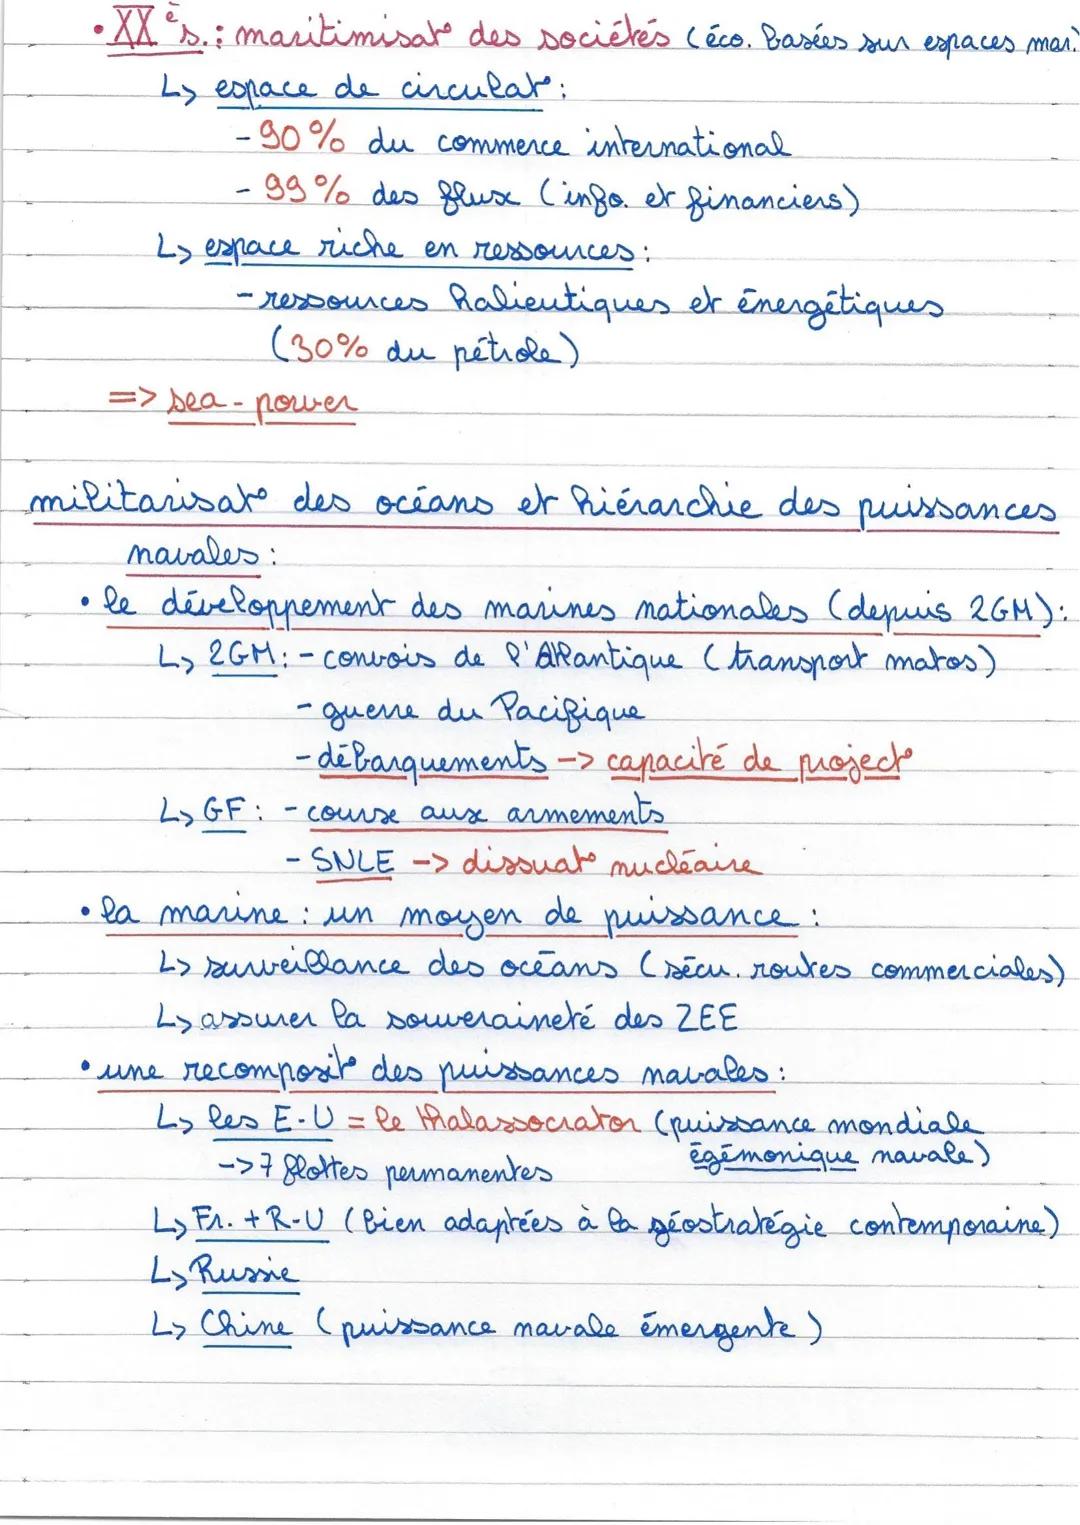 • XXe s. : maritimisat° des sociétés (éco. basées sur espaces mar.)
↳ espace de circulat° :
- 90% du commerce international
- 99% des flux (info. et financiers)
↳ espace riche en ressources :
- ressources halieutiques et énergétiques
(30% du pétrole)
=> sea-power
militarisat° des océans et hiérarchie des puissances
navales :
• le développement des marines nationales (depuis 2GM) :
↳ 2GM : - convois de l'Atlantique (transport matos)
- guerre du Pacifique
- débarquements -> capacité de project°
↳ GF : - course aux armements
- SNLE -> dissuat° nucléaire
• la marine : un moyen de puissance :
↳ surveillance des océans (sécu. routes commerciales)
↳ assurer la souveraineté des ZEE
• une recomposit° des puissances navales :
↳ les E-U = le thalassocrator (puissance mondiale
égémonique navale)
-> 7 flottes permanentes
↳ Fr. + R-U (bien adaptées à la géostratégie contemporaine)
↳ Russie
↳ Chine (puissance navale émergente)